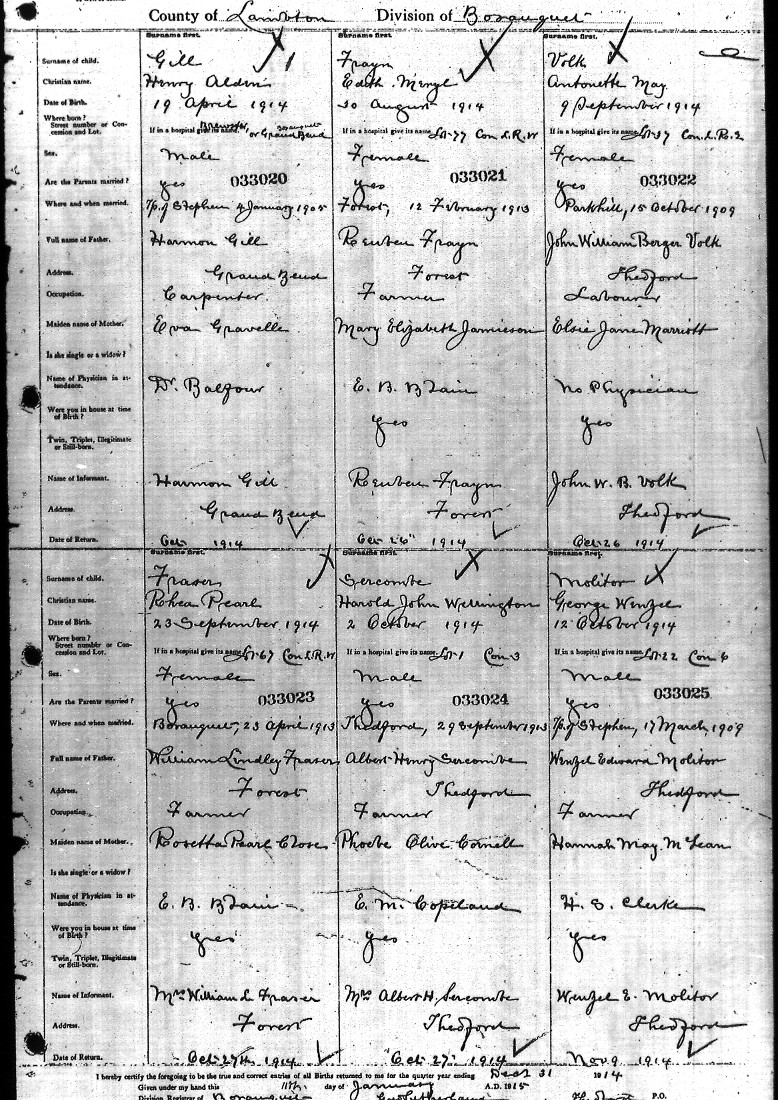 County of Lambton Division of Bosanquet
Surname first. Surname first. Surname first.
Surname of child. Gill Frayn Volk
Christian name. Henry Aldin Edith Meryl Antonette May
Date of Birth. 19 April 1914 30 August 1914 9 September 1914
Where born?
Street number or Concession and Lot. If in a hospital give its name. Brewster, Bosanquet or Grand Bend If in a hospital give its name. Lot 77 Con L.R.W If in a hospital give its name. Lot 37 Con. L.R.2
Sex. Male Female Female
Are the Parents married? yes 033020 yes 033021 yes 033022
Where and when married. Tp. of Stephen 4 January 1905 Forest, 12 February 1913 Parkhill, 15 October 1909
Full name of Father. Harmon Gill Reuben Frayn John William Berger Volk
Address. Grand Bend Forest Thedford
Occupation. Carpenter. Farmer Labourer
Maiden name of Mother. Eva Gravelle Mary Elizabeth Jamieson Elsie Jane Marriott
Is she single or a widow?
Name of Physician in attendance. Dr. Balfour E. B. Blain no Physician
Were you in house at time of Birth? yes yes
Twin, Triplet, Illegitimate or Still-born.
Name of Informant. Harmon Gill Reuben Frayn John W. B. Volk
Address. Grand Bend Forest Thedford
Date of Return. Oct 1914 Oct 26" 1914 Oct 26 1914
Surname first. Surname first. Surname first.
Surname of child. Fraser Sercombe Molitor
Christian name. Rhea Pearl Harold John Wellington George Wenzel
Date of Birth. 23 September 1914 2 October 1914 12 October 1914
Where born?
Street number or Concession and Lot. If in a hospital give its name. Lot 67 Con L.R.W. If in a hospital give its name. Lot 1 Con 3 If in a hospital give its name. Lot 22 Con 6
Sex. Female Male Male
Are the Parents married? yes 033023 yes 033024 yes 033025
Where and when married. Bosanquet, 23 April 1913 Thedford, 29 September 1913 Tp. of Stephen, 17 March, 1909
Full name of Father. William Lindley Fraser Albert Henry Sercombe Wenzel Edward Molitor
Address. Forest Thedford Thedford
Occupation. Farmer Farmer Farmer
Maiden name of Mother. Rosetta Pearl Close Phoebe Olive Cornell Hannah May McLean
Is she single or a widow?
Name of Physician in attendance. E. B. Blain E. M. Copeland H. S. Clerke
Were you in house at time of Birth? yes yes yes
Twin, Triplet, Illegitimate or Still-born.
Name of Informant. Mrs William L. Fraser Mrs Albert H. Sercombe Wenzel E. Molitor
Address. Forest Thedford Thedford
Date of Return. Oct 27th 1914 Oct 27" 1914 Nov 9 1914
I hereby certify the foregoing to be the true and correct entries of all Births returned to me for the quarter year ending Dec 31 1914
Given under my hand this 11th day of January A.D. 1915
Division Registrar of Bosanquet Sutherland P.O.